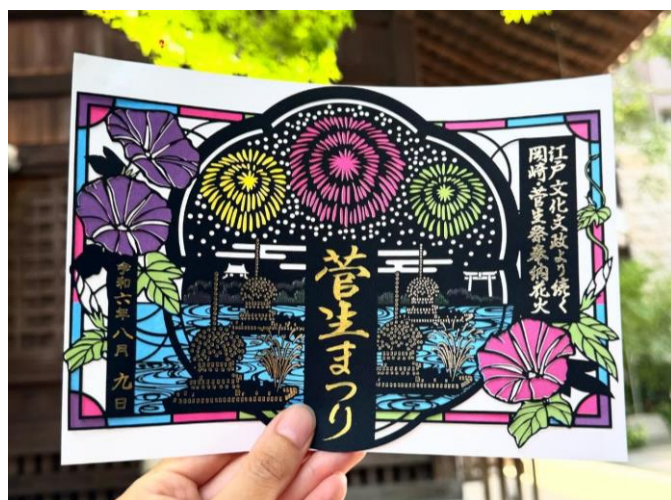 江戸文化文政より続く
岡崎・菅生祭奉納花火
菅生まつり
令和六年八月九日